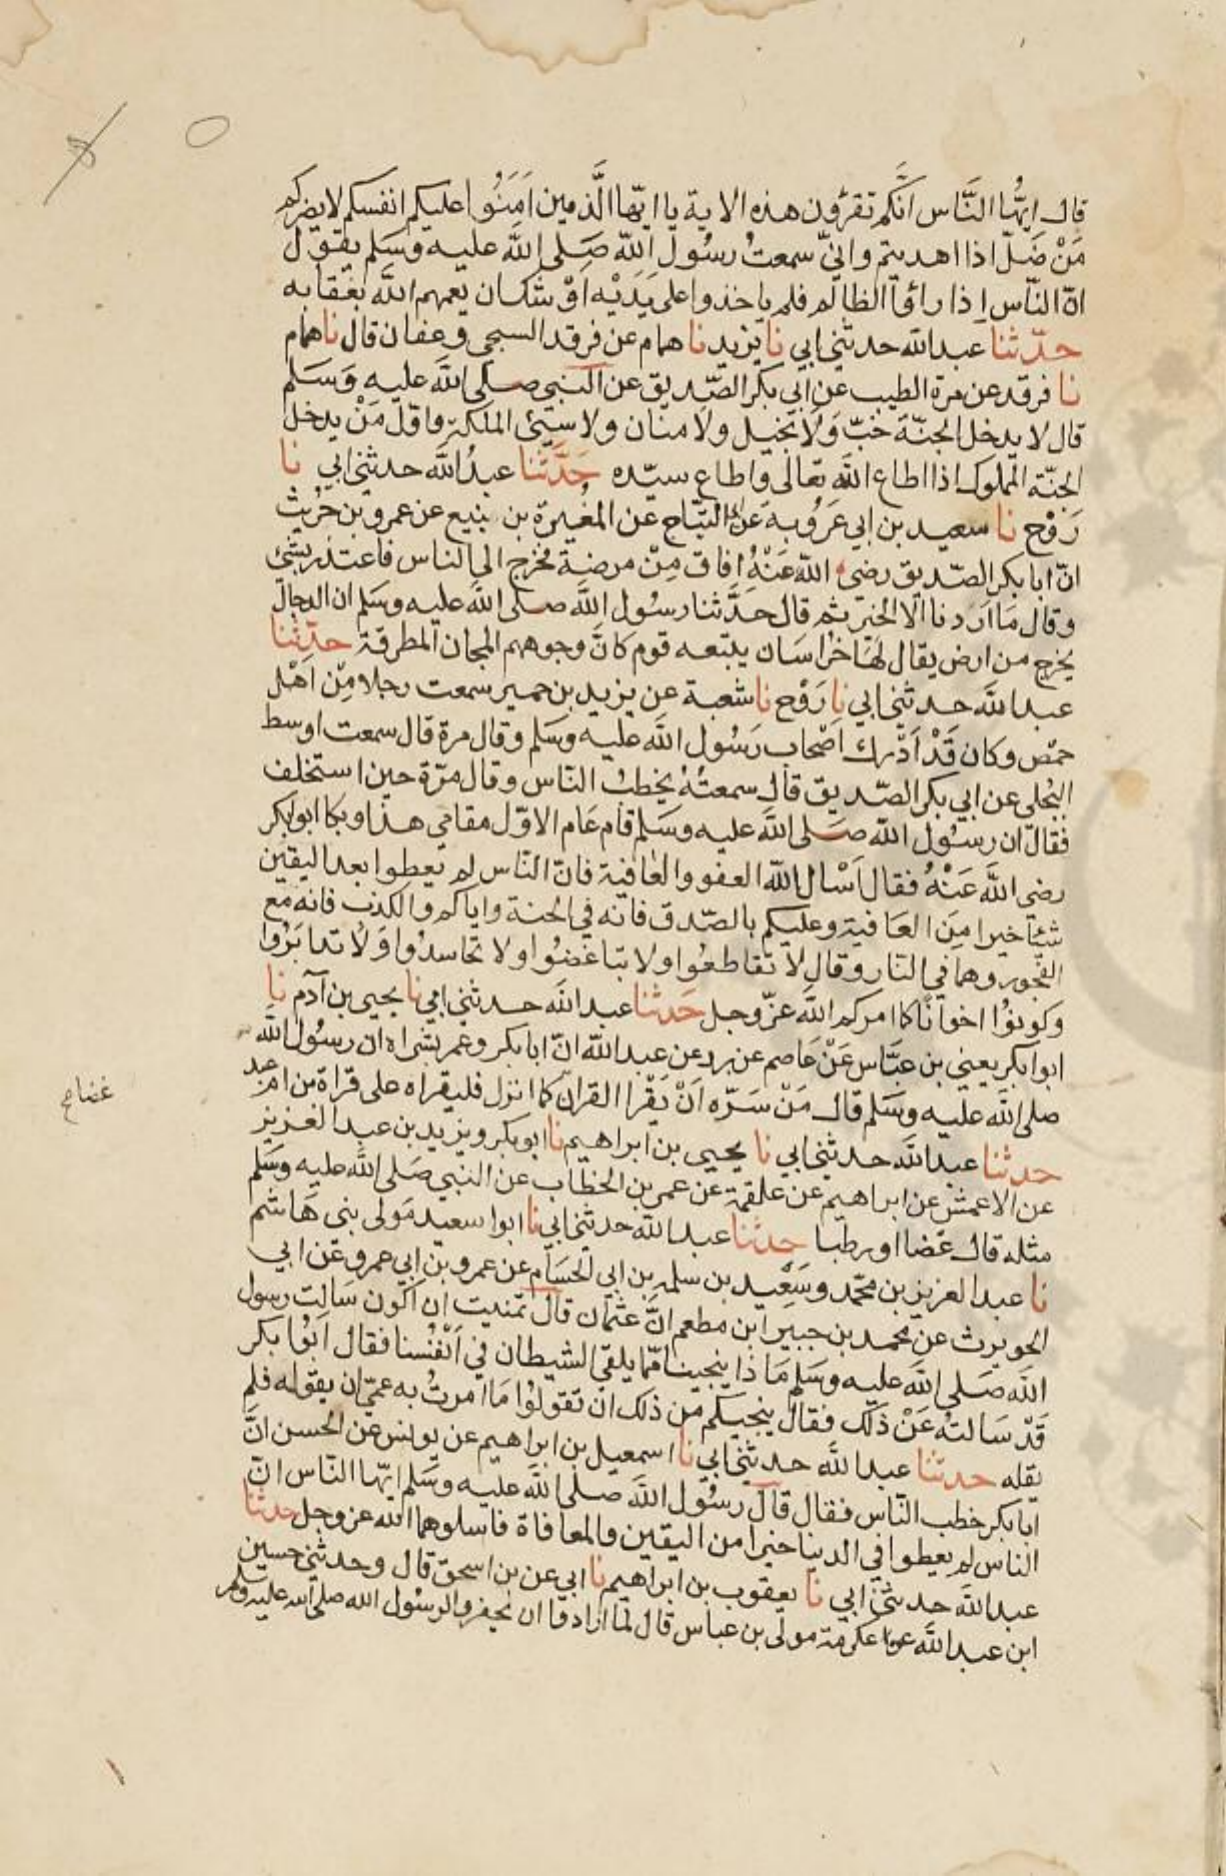 قال ايّها النَّاس انّكم تقرؤن هذه الاية يا ايّها الَّذين اٰمَنُوا عليكم انفسكم لا يضركم
مَنْ ضَلّ اذا اهديتم واني سمعتُ رسُول الله صَلى الله عليه وسَلم يقول
انّ النّاس إذا راؤا الظالم فلم ياخذوا على يَدَيْه اوْشكان يعمهم الله بعقابه
حدّثنا عبدالله حدثني ابي نا يزيد نا همام عن فرقد السبجي وعفان قال نا همام
نا فرقد عن مرة الطيب عن ابي بكر الصّديق عن النبي صلى الله عليه وَسَلم
قال لا يدخل الجنّة خبّ وَلا بخيل ولا منان ولا سيئ الملكة واوّل مَنْ يدخل
الجنّة المملوك اذا اطاع الله تعالى واطاع سيّده حَدَّثنا عبدُ الله حدثني ابي نا
رَوْح نا سعيد بن ابي عَرُوبة عَن التيّاح عن المغيرة بن بنيع عن عمرو بن حُريث
انّ ابا بكر الصّديق رضي الله عَنْهُ افاق مِنْ مرضة فخرج الى الناس فاعتذر بشئ
وقال مَا اَردنا الا الخير ثم قال حَدَّثنا رسُول الله صلى الله عليه وسَلم ان الدجال
يخرج من ارض يقال لهَا خراسَان يتبعه قوم كانَّ وجوههم المجان المطرقة حدّثنا
عبدالله حدثني ابي نا رَوْح نا شعبة عن يزيد بن حمير سمعت رجلا مِنْ اَهْل
حمْص وكان قَدْ اَدْرك اصْحاب رَسُول الله عليه وسَلم وقال مرة قال سمعت اوسط
البُجلي عن ابي بكر الصّديق قال سمعتُهُ يخطبُ النّاس وقال مرّة حين استخلف
فقال ان رسُول الله صَلى الله عليه وسَلم قام عَام الاوّل مقامي هذا وبكا ابو بكر
رضي الله عَنْهُ فقال اَسْال الله العفو والعافية فانّ النّاس لم يعطوا بعد اليقين
شيًا خيرا مِنَ العَافية وعليكم بالصّدق فانه في الجنة واياكم والكذب فانه مَع
الفجور وهما في النار وقال لا تقاطعُوا ولا تباغضُوا ولا تحاسدُوا وَلا تدابَرُوا
وكونوُا اخوانًا كما امركم الله عزّ وجل حَدثنا عبدالله حدثني ابي نا يحيى بن آدم نا
ابوا بكر يعني بن عيَّاس عَنْ عَاصم عن برد عن عبد الله انّ ابا بكر وعمر بشراه ان رسُول الله
صلى الله عليه وسَلم قال مَنْ سَرّه اَنْ يَقْرا القران كما انزل فليقراه على قراة بن ام عبد
غضا صح
حدثنا عبدالله حدثني ابي نا يحيى بن ابراهيم نا ابو بكر ويزيد بن عبد العزيز
عن الاعمش عن ابراهيم عن علقمة عن عمر بن الخطاب عن النبي صَلى الله عليه وسَلم
مثله قال غضا او رطبا حدثنا عبدالله حدثني ابي نا ابوا سعيد مَولى بني هَاشم
نا عبد العزيز بن محمّد وسَعْيد بن سلمة بن ابي الحسَام عن عمرو بن ابي عمرو عَن ابي
الحويرث عن محمد بن جبير ابن مطعم انّ عثمان قال تمنيت ان اكون سَالت رسول
الله صَلى الله عليه وسَلم مَاذا ينجينا ممّا يلقي الشيطان في اَنْفُسنا فقال ابوُا بكر
قَدْ سَالتهُ عَنْ ذلك فقال ينجيكم من ذلك ان تقولوُا مَا امرتُ به عمّي ان يقوله فلم
يقله حدثنا عبدالله حدثني ابي نا اسمعيل بن ابراهيم عن يونس عن الحسن انّ
ابا بكر خطب النّاس فقال قال رسُول الله صلى الله عليه وسَلم ايّها النّاس انّ
الناس لم يعطوا في الدينا خيرا من اليقين والمعافاة فاسلوهما الله عز وجل حدثنا
عبدالله حدثني ابي نا يعقوب بن ابراهيم نا ابي عن بن اسحق قال وحدثني حسين
ابن عبد الله عن عكرمة مولى بن عباس قال لما ارادوا ان يحفروا لرسُول الله صلى الله عليه وسلم